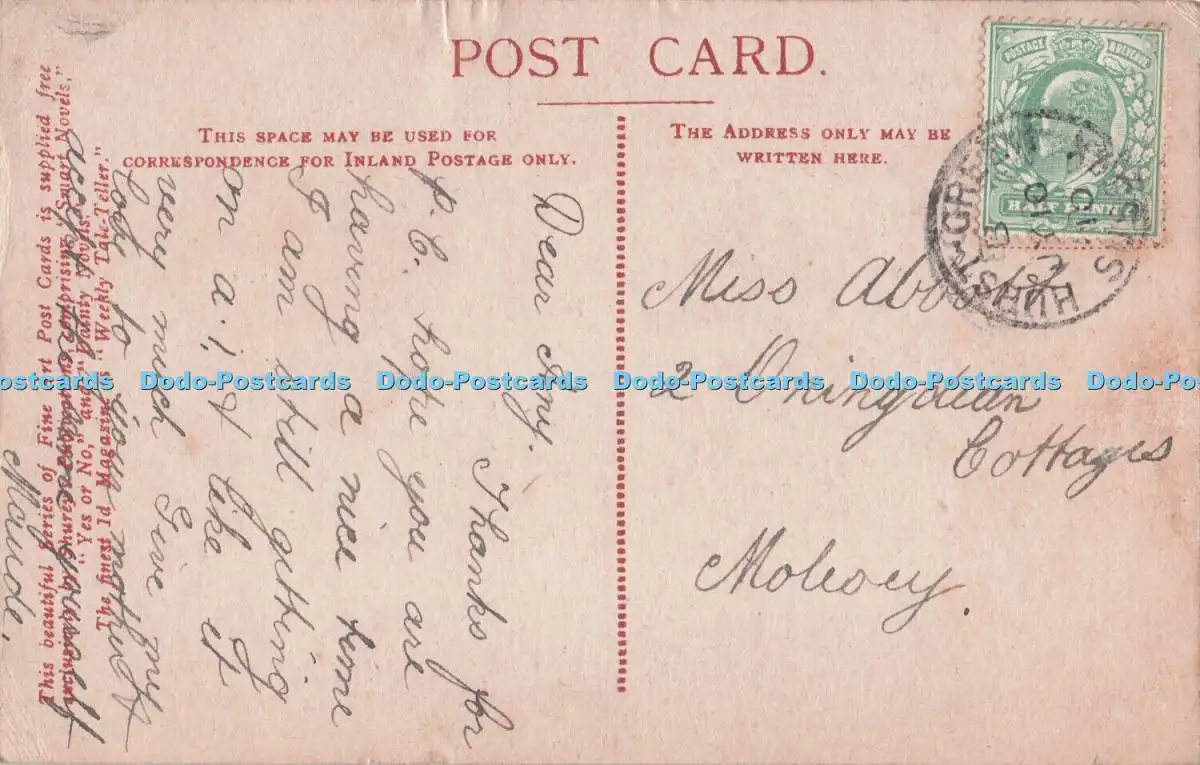 POST CARD.
THIS SPACE MAY BE USED FOR
CORRESPONDENCE FOR INLAND POSTAGE ONLY.
THE ADDRESS ONLY MAY BE
WRITTEN HERE.
POSTAGE & REVENUE
HALF PENNY
Miss
2
Cottages
Dear
Thanks for
p. c. hope you are
having a nice time
I am still getting
on a.1. & like it
very much Give my
love to your mother &
accept the same yourself
Maude.
This beautiful Series of Fine Art Post Cards is supplied free
exclusively by Shurey's Publications, comprising "Smart Novels,"
"Yes or No," and "Dainty Novels."
The finest 1d Magazine is "Weekly Tale-Teller."
Dodo-Postcards Dodo-Postcards Dodo-Postcards Dodo-Postcards Dodo-Postcards Dodo-Postcards